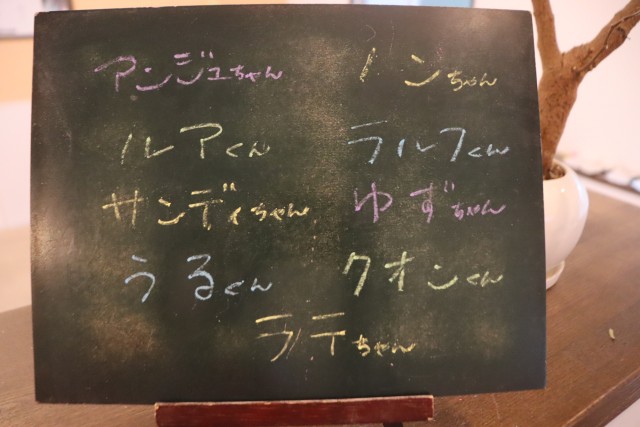 アンジュちゃん ノンちゃん
ルアくん ラルフくん
サンディちゃん ゆずちゃん
うるくん クオンくん
ラテちゃん